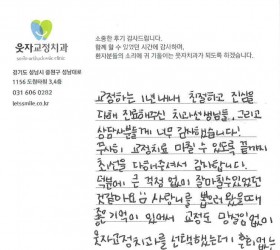 소중한 후기 감사드립니다.
함께 할 수 있었던 시간에 감사하며,
환자분들의 소리에 귀 기울이는 웃자치과가 되도록 하겠습니다.
웃자교정치과
경기도 성남시 중원구 성남대로
1156 도원타워 3,4층
031 606 0282
letssmile.co.kr
교정하는 1년 내내 친절하고 진심을
다해 진료해주신 치과선생님들, 그리고
상담사분들께 너무 감사했습니다!
무사히 교정치료 마칠 수 있도록 끝까지
최선을 다해주셔서 감사합니다.
덕분에 큰 걱정 없이 잘 마칠수있었던
것같아요 사랑니를 뽑으러 왔을때
좋은 기억이 있어서 교정도 망설임없이
웃자교정치과를 선택했는데